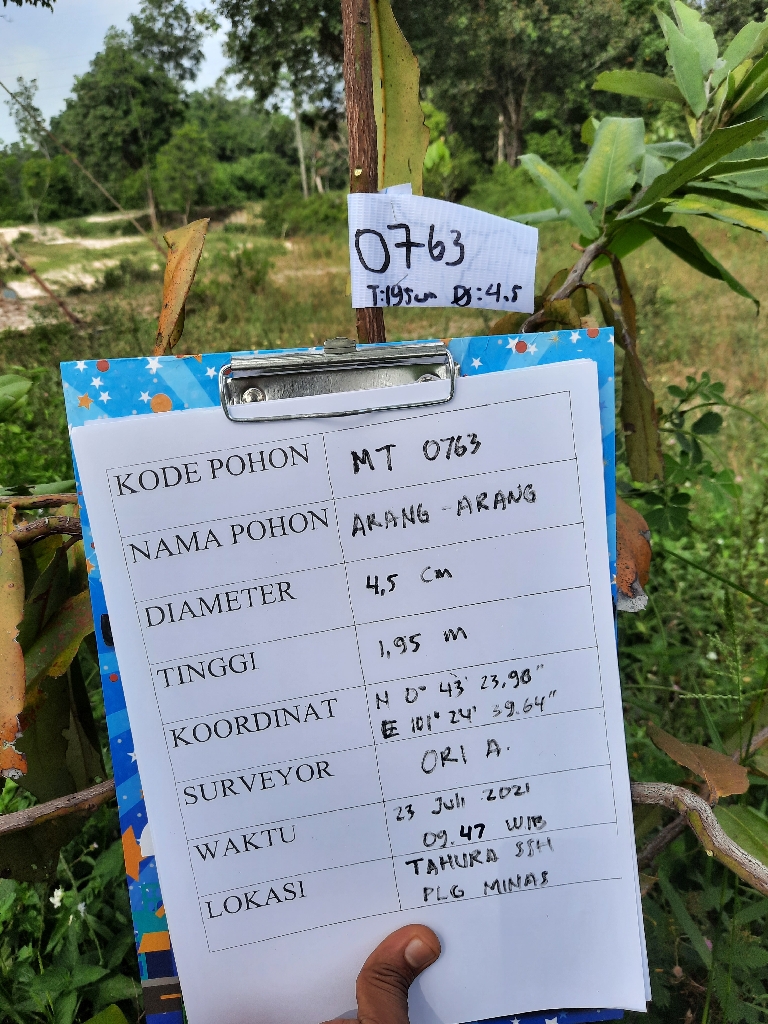 0763
T:195cm Ø:4.5
KODE POHON MT 0763
NAMA POHON ARANG-ARANG
DIAMETER 4,5 Cm
TINGGI 1,95 m
KOORDINAT N 0° 43' 23,90"
E 101° 24' 59.64"
SURVEYOR ORI A.
WAKTU 23 Juli 2021
09.47 WIB
LOKASI TAHURA SSH
PLG MINAS